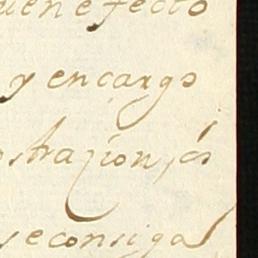 buen efecto
y encargo
straçion, ó
se consiga